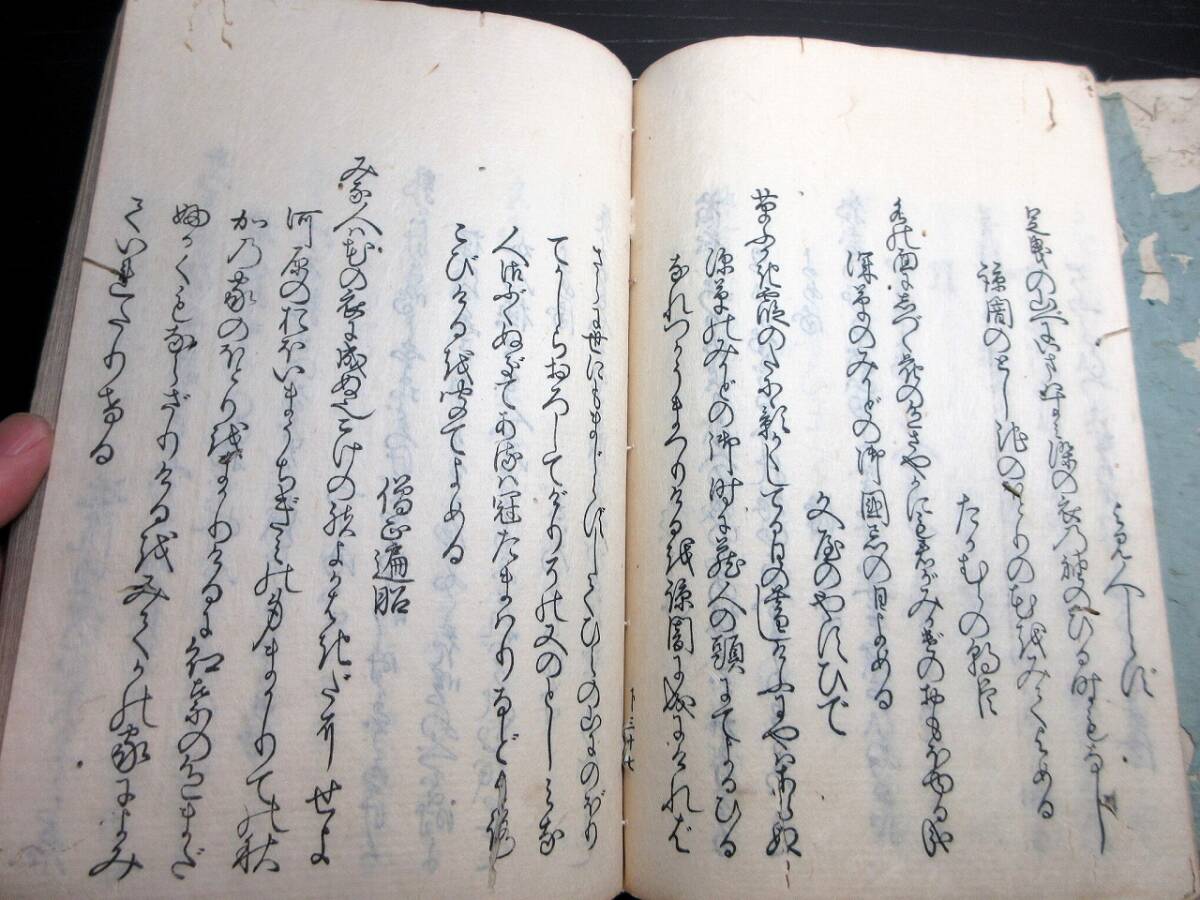 よみ人しらず
足曳の山べにいまはすみ染の衣の袖のひる時もなし
諒闇のとし池のほとりの花をみてよめる
たかむらの朝臣
水の面にしづく花の色さやかにも君がみかげのおもほゆる哉
深草のみかどの御国忌の日よめる
文屋のやすひで
草ふかき霞の谷に影かくしてる日の暮しけふにやはあらぬ
深草のみかどの御時に蔵人の頭にてよるひる
なれつかうまつりけるを諒闇に成にければ
下三十七
さらに世にもまじらずしてひえの山にのぼり
てかしらおろしてけりその又のとしみな
人御ぶくぬぎてあるは冠たまはりなどよろ
こびけるを聞てよめる
僧正遍昭
みな人は花の衣に成ぬ也こけの袂よかはきだにせよ
河原のおほいまうちぎみの身まかりての秋
かの家のほとりをまかりけるに紅葉の色まだ
ふかくもならざりけるをみてかの家によみ
ていれたりける